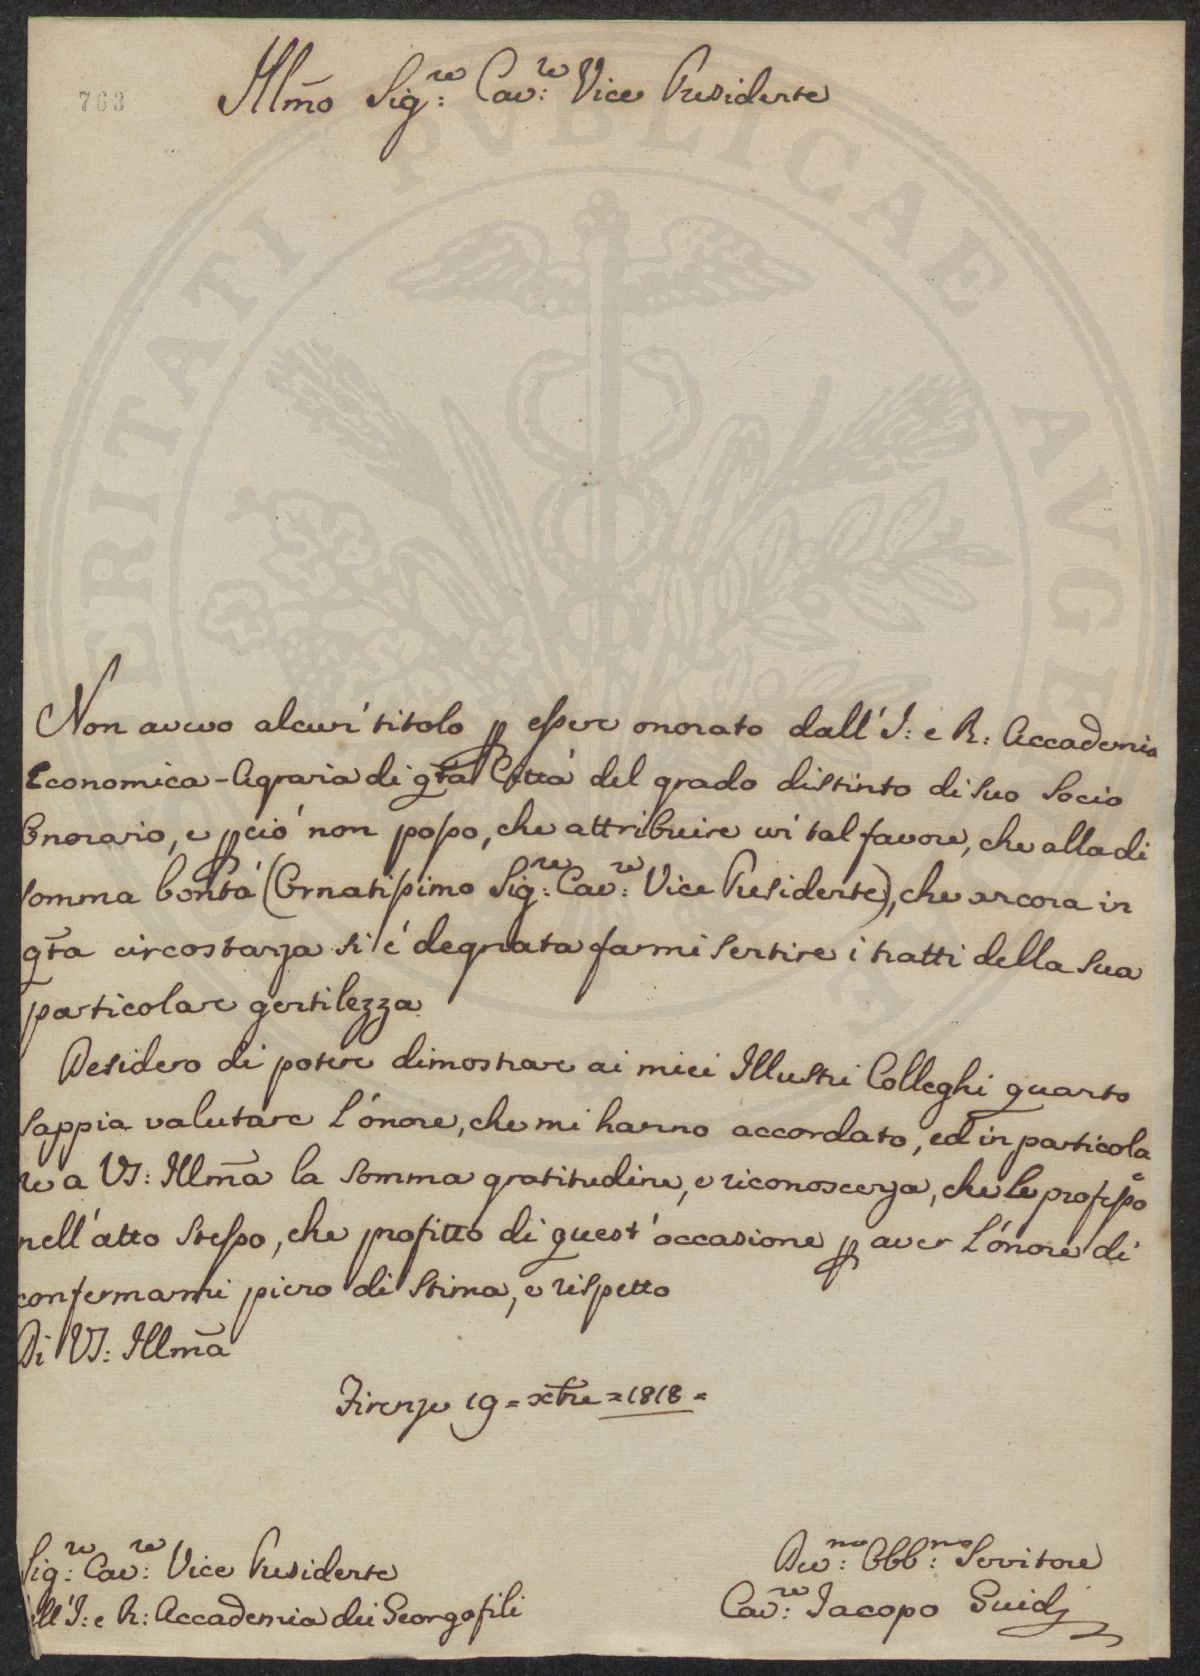 763
Illmo Sig:re Cav:re Vice Presidente
Non avevo alcun' titolo p essere onorato dall' I: e R: Accademia
Economica-Agraria di qta Città del grado distinto di suo Socio
Onorario, e pciò non posso, che attribuire un' tal favore, che alla di
somma bontà (Ornatissimo Sig:re Cav:re Vice Presidente), che ancora in
qta circostanza si è degnata farmi sentire i tratti della sua
particolare gentilezza
Desidero di potere dimostrare ai miei Illustri Colleghi quanto
sappia valutare l'onore, che mi hanno accordato, ed in particola
re a VS: Illma la somma gratitudine, e riconoscenza, che le professo
nell'atto stesso, che profitto di quest'occasione p aver l'onore di
confermarmi pieno di stima, e rispetto
Di VS: Illma
Firenze 19 = xbre = 1818 =
Sig:re Cav:re Vice Presidente
dell'I: e R: Accademia dei Georgofili
Dev:mo Obb:mo Servitore
Cav:re Jacopo Guidj
ERITATI PVBLICAE AVGE